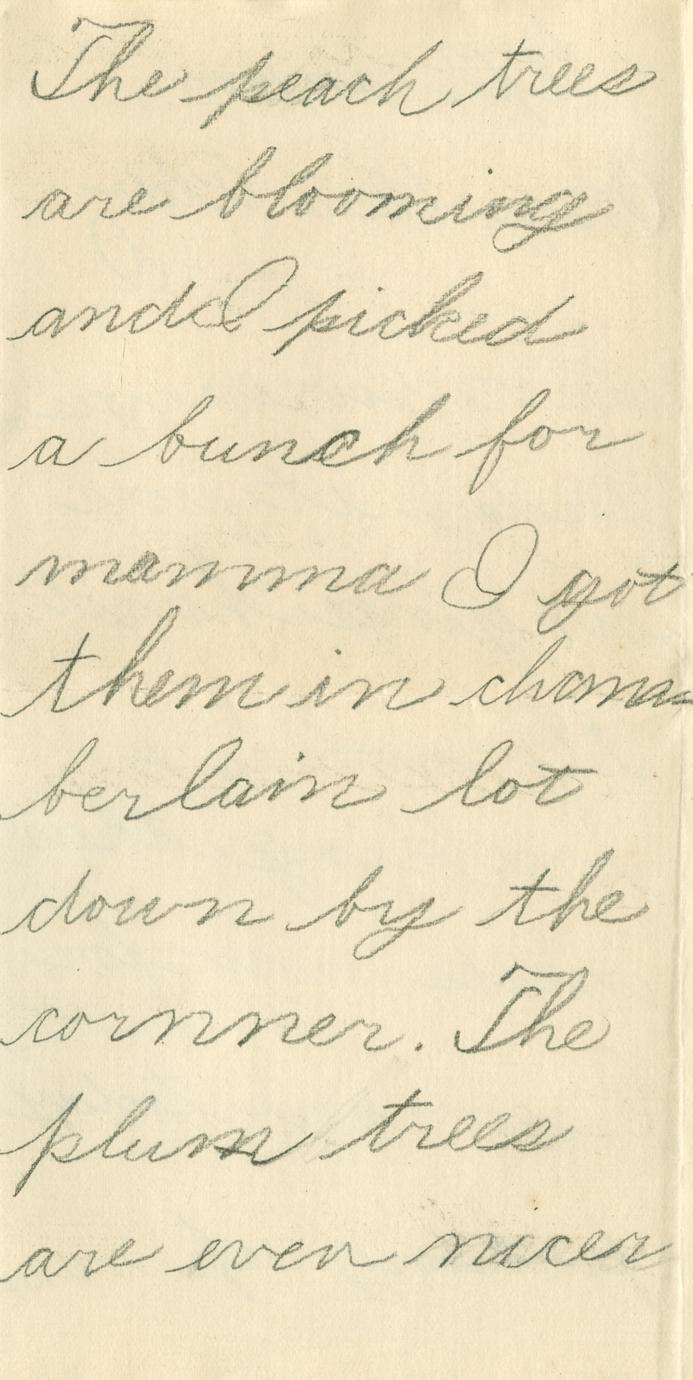 The peach trees
are blooming
and I picked
a bunch for
mamma I got
them in chama-
berlain lot
down by the
cornner. The
plum trees
are even nicer